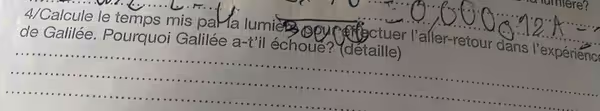 lumière?
0,000012
4/Calcule le temps mis par la lumière pour effectuer l'aller-retour dans l'expérience
de Galilée. Pourquoi Galilée a-t'il échoué? (détaille)